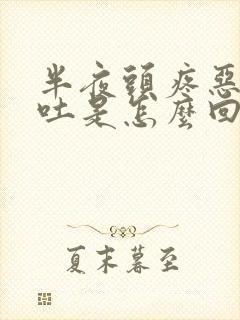 半夜頭疼惡
吐是怎麼回
夏末暮至